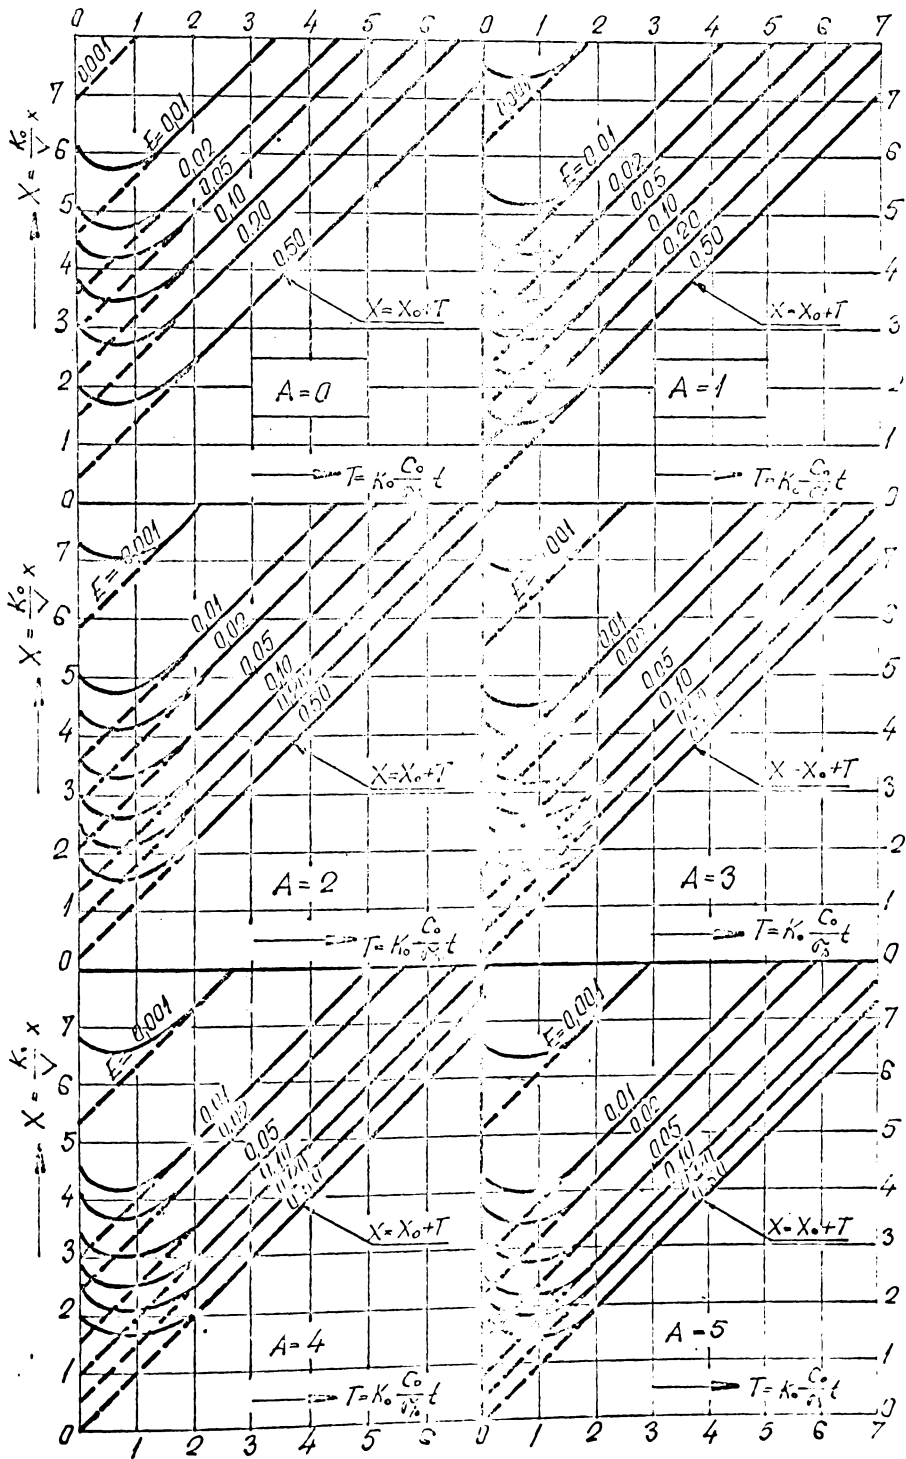 0 1 2 3 4 5 6 0 1 2 3 4 5 6 7
X = K₀/V x
7
6
5
4
3
2
1
0
0,001
E=0,01
0,02
0,05
0,10
0,20
0,50
X=X₀+T
A=0
T=K₀ C₀/ t
E=0,01
0,02
0,05
0,10
0,20
0,50
X=X₀+T
A=1
T=K₀ C₀/ t
7
6
5
4
3
1
0
X = K₀/V x
7
6
5
4
3
2
1
0
E=0,001
0,01
0,02
0,05
0,10
0,50
X=X₀+T
A=2
T=K₀ C₀/ t
0,01
0,05
0,10
X=X₀+T
A=3
T=K₀ C₀/ t
7
6
5
4
3
2
1
0
X = K₀/V x
7
6
5
4
3
2
1
0
E=0,001
0,01
0,02
0,05
0,10
X=X₀+T
A=4
T=K₀ C₀/ t
E=0,001
0,01
0,02
0,05
0,10
X=X₀+T
A=5
T=K₀ C₀/ t
7
6
5
4
3
2
1
0
0 1 2 3 4 5 6 0 1 2 3 4 5 6 7